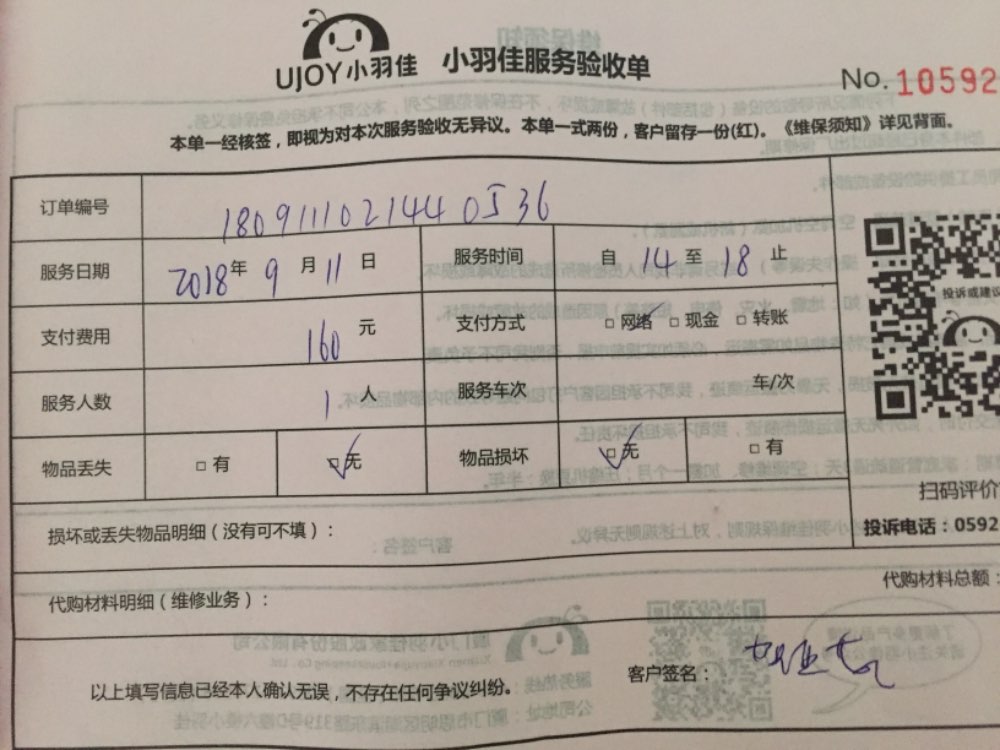 UJOY小羽佳 小羽佳服务验收单
No. 10592
本单一经核签，即视为对本次服务验收无异议。本单一式两份，客户留存一份(红)。《维保须知》详见背面。
订单编号 1809111021440536
服务日期 2018年 9 月 11 日 服务时间 自 14 至 18 止
支付费用 160 元 支付方式 □网络 □现金 □转账
服务人数 1 人 服务车次 车/次
物品丢失 □有 □无 物品损坏 □无 □有
投诉或建议
扫码评价
投诉电话：0592
损坏或丢失物品明细（没有可不填）：
代购材料明细（维修业务）：
代购材料总额：
以上填写信息已经本人确认无误，不存在任何争议纠纷。
客户签名：